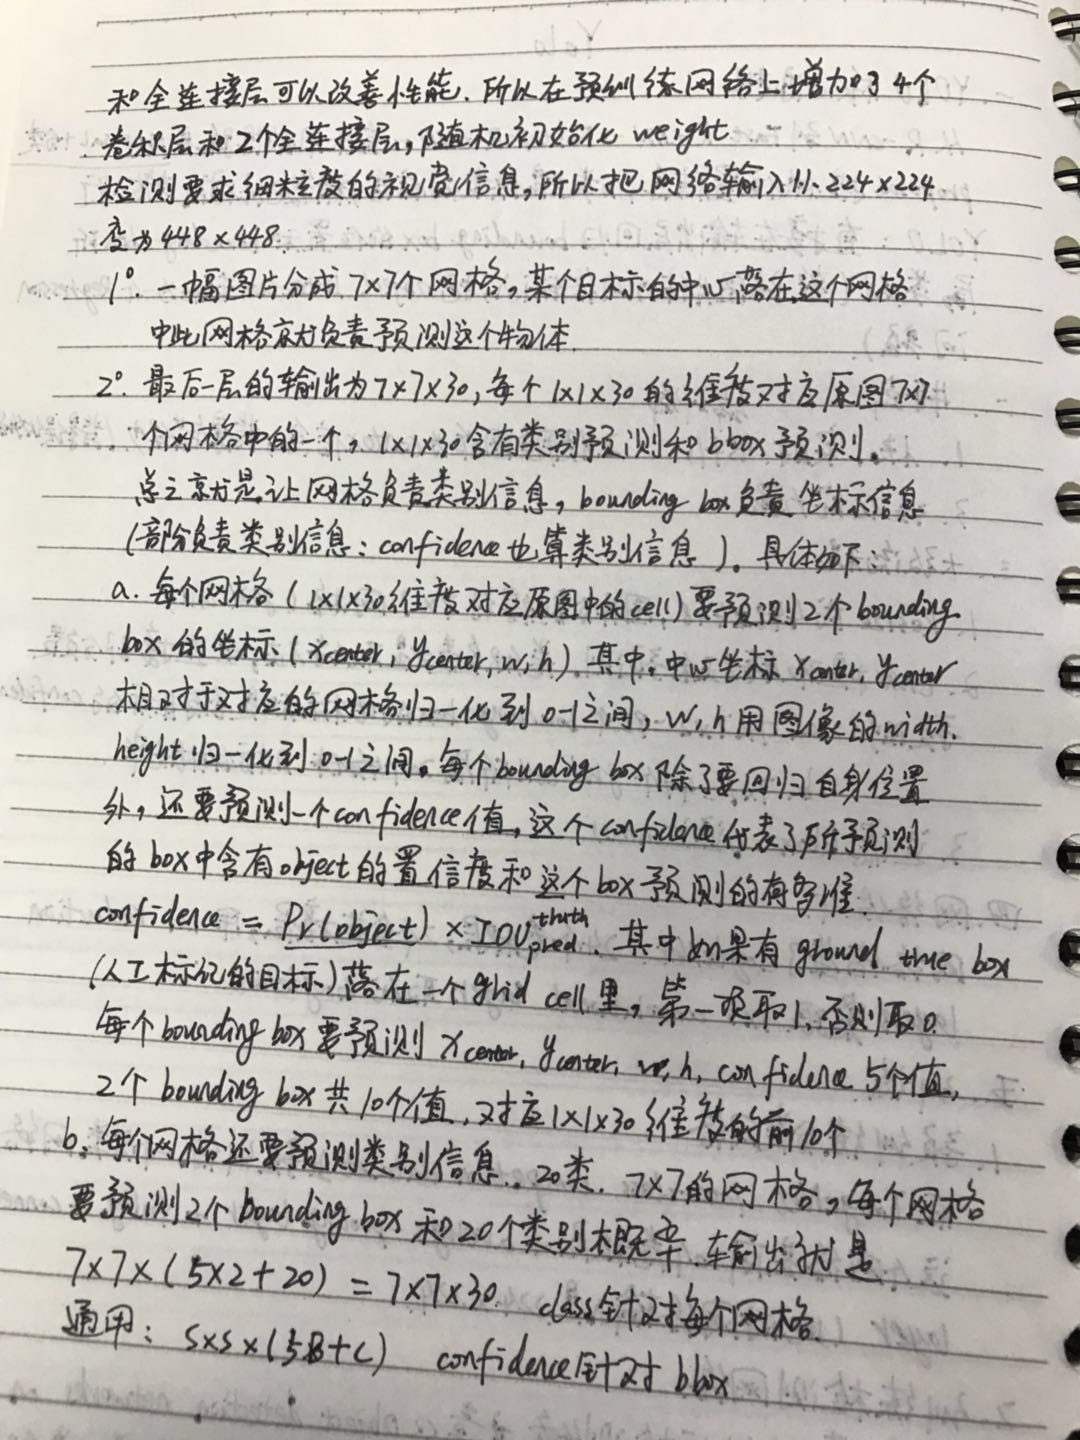 和全连接层可以改善性能. 所以在预训练网络上增加了4个
卷积层和2个全连接层,随机初始化 weight
检测要求细粒度的视觉信息,所以把网络输入从224×224
变为448×448.
1°. 一幅图片分成7×7个网格,某个目标的中心落在这个网格
中此网格就负责预测这个物体.
2°. 最后一层的输出为7×7×30,每个1×1×30的维度对应原图7×7
个网格中的一个,1×1×30含有类别预测和bbox预测。
总之就是让网格负责类别信息,bounding box负责坐标信息
(部分负责类别信息:confidence也算类别信息)。具体如下:
a. 每个网格(1×1×30维度对应原图中的cell)要预测2个bounding
box的坐标(xcenter, ycenter, w, h).其中,中心坐标xcenter, ycenter
相对于对应的网格归一化到0-1之间,w, h用图像的width.
height归一化到0-1之间。每个bounding box除了要回归自身位置
外,还要预测一个confidence值,这个confidence代表了所预测
的box中含有object的置信度和这个box预测的有多准.
confidence = Pr(object) × IOU truth pred. 其中如果有ground true box
(人工标记的目标)落在一个grid cell里,第一项取1,否则取0.
每个bounding box要预测xcenter, ycenter, w, h, confidence 5个值,
2个bounding box共10个值,对应1×1×30维度的前10个
b. 每个网格还要预测类别信息.. 20类. 7×7的网格,每个网格
要预测2个bounding box和20个类别概率.输出就是
7×7×(5×2+20) = 7×7×30. class针对每个网格.
通用: S×S×(5B+C) confidence针对bbox